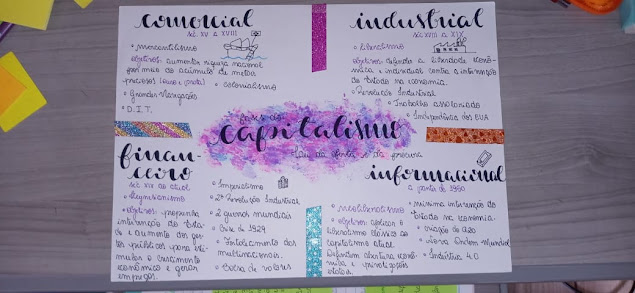 comercial
séc XV a XVIII
• mercantilismo
objetivos: aumentar riqueza nacional
por meio do acúmulo de metais
preciosos (ouro e prata)
• colonialismo
• Grandes Navegações
• D.I.T.
industrial
séc XVIII a XIX
• liberalismo
objetivos: defender a liberdade econô-
mica e individual contra a intervenção
do Estado na economia.
• Revolução Industrial
• Trabalho assalariado
• Independência dos EUA
fases do
capitalismo
Lei da oferta e da procura
finan-
ceiro
séc XIX ao atual
• Keynesianismo
• objetivos: propunha
intervenção do Esta-
do e aumento dos gas-
tos públicos para esti-
mular o crescimento
econômico e gerar
empregos.
• Imperialismo
• 2ª Revolução Industrial
• 2 guerras mundiais
• Crise de 1929
• Fortalecimento das
multinacionais.
• Bolsa de valores
informacional
a partir de 1980
• neoliberalismo
• objetivos: aplicar o
liberalismo clássico ao
capitalismo atual.
Defendem abertura econô-
mica e privatizações
• mínima intervenção do
Estado na economia.
• criação do
• Nova Ordem Mundial
• Indústria 4.0